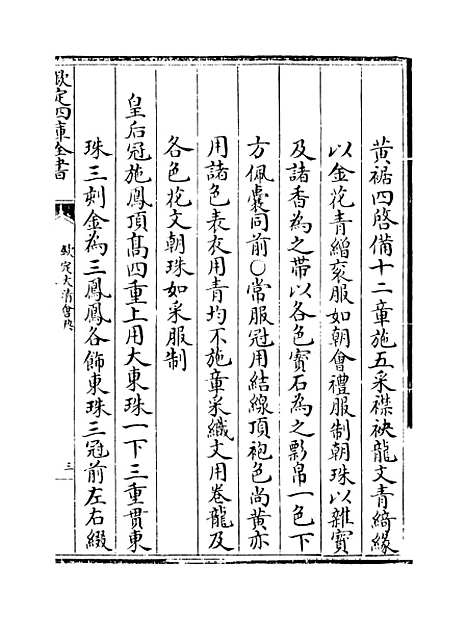 黄裾四啓備十二章施五采襟袂龍文青綺緣
以金花青繒衮服如朝會禮服制朝珠以雜寶
及諸香為之帶以各色寳石為之㡠帛一色下
方佩囊同前○常服冠用結線頂袍色尚黄亦
用諸色表衣用青均不施章采織文用卷龍及
各色花文朝珠如采服制
皇后冠施鳳頂髙四重上用大東珠一下三重貫東
珠三刻金為三鳳鳳各飾東珠三冠前左右綴
欽定四庫全書
欽定大清㑹典
三